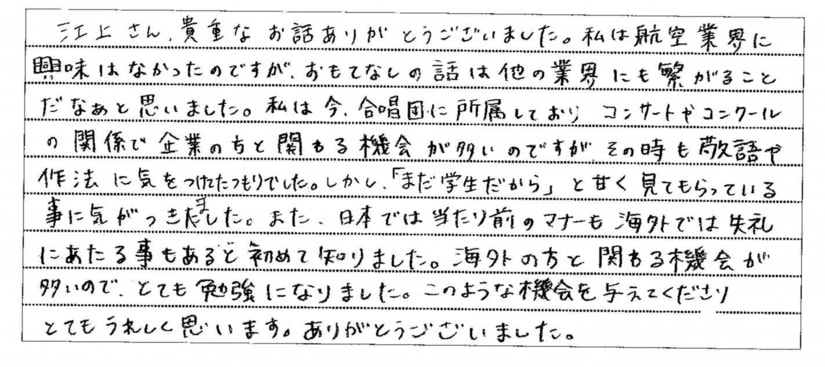 江上さん、貴重なお話ありがとうございました。私は航空業界に
興味はなかったのですが、おもてなしの話は他の業界にも繋がること
だなぁと思いました。私は今、合唱団に所属しており コンサートやコンクール
の関係で企業の方と関わる機会が多いのですが その時も敬語や
作法に気をつけてたつもりでした。しかし、「まだ学生だから」と甘く見てもらっている
事に気がつきました。また、日本では当たり前のマナーも海外では失礼
にあたる事もあると初めて知りました。海外の方と関わる機会が
多いので、とても勉強になりました。このような機会を与えてくださり
とてもうれしく思います。ありがとうございました。